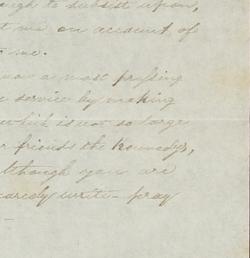 to subsist upon,
me on account of
me.
now a most pressing
service by making
which is not so large
friends the Kennedys,
although you are
scarcely write - pray